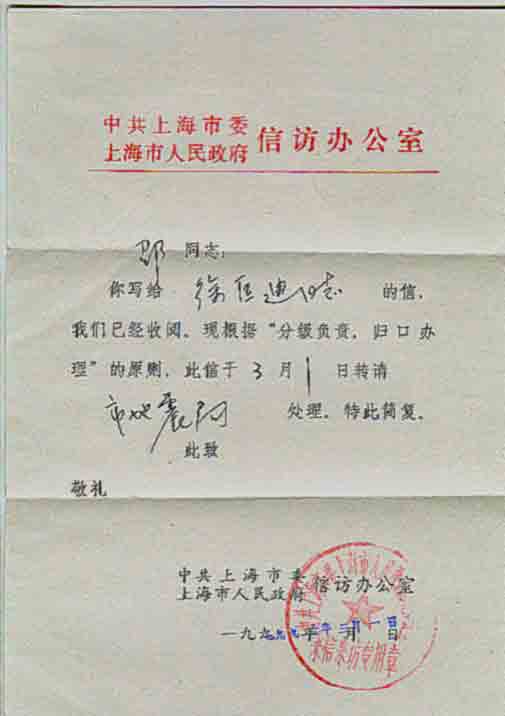 中共上海市委
上海市人民政府 信访办公室
同志:
你写给 徐匡迪同志 的信,
我们已经收阅。现根据“分级负责,归口办
理”的原则,此信于 3 月 1 日转请
市地震局 处理。特此简复。
此致
敬礼
中共上海市委
上海市人民政府 信访办公室
一九九九年三月一日
来信来访专用章